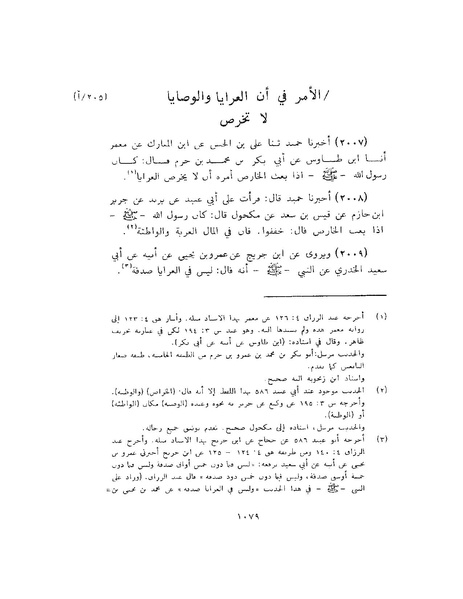 /الأمر في أن العرايا والوصايا (٢٠٥/أ)
لا تخرص
(٢٠٠٧) أخبرنا حميد ثنا علي بن الحسن عن ابن المبارك عن معمر
أنا ابن طاوس عن أبي بكر بن محمد بن حزم قال: كان
رسول الله - ﷺ - اذا بعث الخارص أمره أن لا يخرص العرايا(١).
(٢٠٠٨) أخبرنا حميد قال: قرأت على أبي عبيد عن يزيد عن جرير
ابن حازم عن قيس بن سعد عن مكحول قال: كان رسول الله - ﷺ -
اذا بعث الخارص قال: خففوا. فان في المال العرية والواطئة(٢).
(٢٠٠٩) ويروى عن ابن جريج عن عمرو بن يحيى عن أبيه عن أبي
سعيد الخدري عن النبي - ﷺ - أنه قال: ليس في العرايا صدقة(٣).
(١) أخرجه عبد الرزاق ٤: ١٢٦ عن معمر بهذا الاسناد مثله. وأشار هق ٤: ١٢٣ إلى
رواية معمر هذه ولم يسندها اليه. وهو عند ش ٣: ١٩٤ لكن في عبارته تحريف
ظاهر. وقال في اسناده: (ابن طاوس عن أبيه عن أبي بكر).
والحديث مرسل: أبو بكر بن محمد بن عمرو بن حزم من الطبقة الخامسة، طبقة صغار
التابعين كما تقدم.
واسناد ابن زنجويه اليه صحيح.
(٢) الحديث موجود عند أبي عبيد ٥٨٦ بهذا اللفظ إلا أنه قال: (الخراص) (والوطية).
وأخرجه ش ٣: ١٩٥ عن وكيع عن جرير به نحوه وعنده (الوصية) مكان (الواطئة)
أو (الوطية).
والحديث مرسل، اسناده إلى مكحول صحيح. تقدم توثيق جميع رجاله.
(٣) أخرجه أبو عبيد ٥٨٦ عن حجاج عن ابن جريج بهذا الاسناد مثله. وأخرج عبد
الرزاق ٤: ١٤٠ ومن طريقه هق ٤: ١٢٤ - ١٢٥ عن ابن جريج أخبرني عمرو بن
يحيى عن أبيه عن أبي سعيد يرفعه: «ليس فيما دون خمس أواق صدقة وليس فيما دون
خمسة أوسق صدقة، وليس فيما دون خمس ذود صدقة» قال عبد الرزاق. (وزاد على
النبي - ﷺ - في هذا الحديث «وليس في العرايا صدقة» عن محمد بن يحيى بن=
١٠٧٩